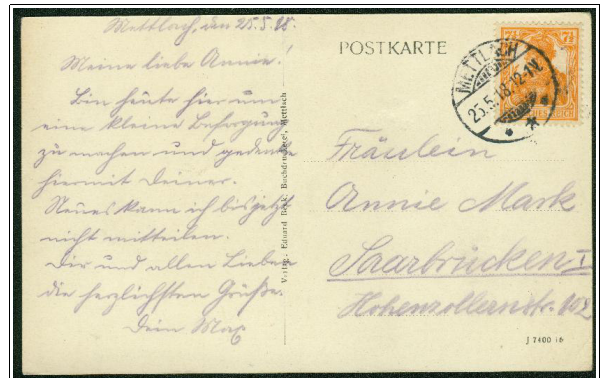 Mettlach, den 25.5.18.
Meine liebe Annie!
Bin heute hier um
eine kleine Besorgung
zu machen und gedenke
hiermit Deiner.
Neues kann ich bis jetzt
nicht mitteilen.
Dir und allen Lieben
die herzlichsten Grüße.
Dein Max
Verlag: Eduard Buchdruckerei, Mettlach
POSTKARTE
METTLACH
25.5.18. 12-1N.
7½ 7½
Fräulein
Annie Mark
Saarbrücken I
Hohenzollernstr. 102
J 7400 16